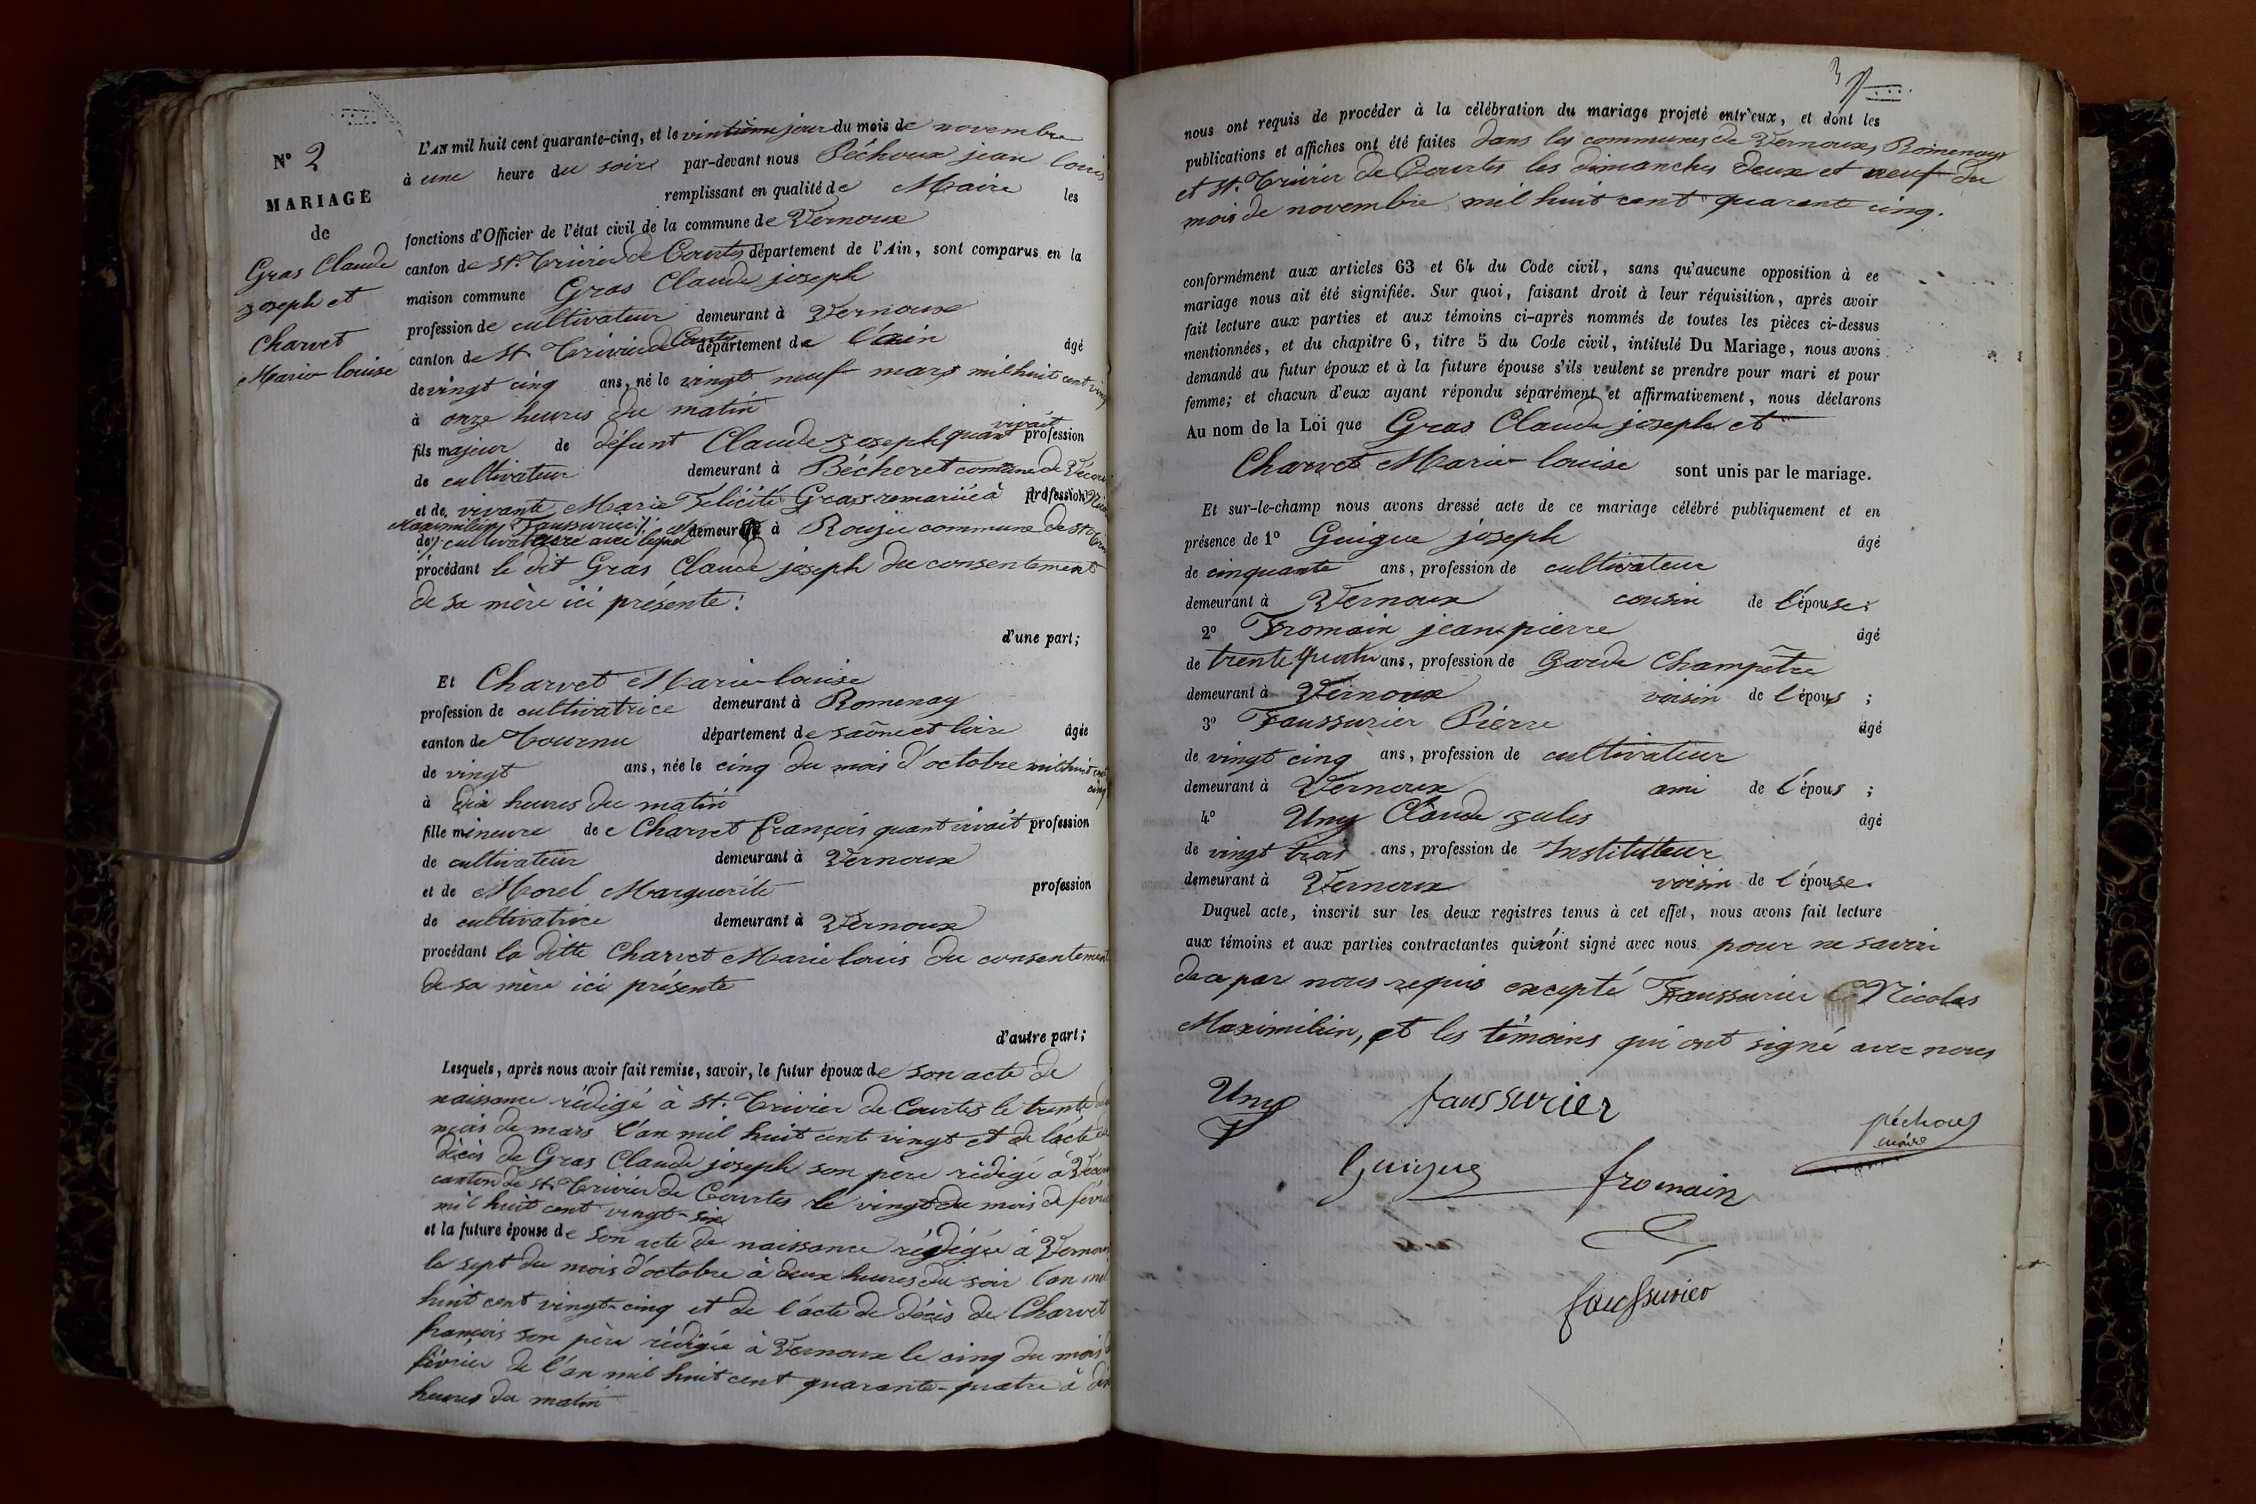 N° 2
MARIAGE
de
Gras Claude
joseph et
Charvet
Marie louise
L'AN mil huit cent quarante-cinq, et le vintième jour du mois de novembre
à une heure du soire par-devant nous Péchoux jean louis
remplissant en qualité de Maire les
fonctions d'Officier de l'état civil de la commune de Vernoux
canton de St. Trivier de Courtes département de l'Ain, sont comparus en la
maison commune Gras Claude joseph
profession de cultivateur demeurant à Vernoux
canton de St Trivier de Courtes département de l'ain âgé
de vingt cinq ans, né le vingt neuf mars mil huit cent vingt
à onze heures du matin
fils majeur de défunt Claude joseph quant vivait profession
de cultivateur demeurant à Bécheret commune de
et de vivante Marie Felicité Gras remariée à profession
Maximilien Faussurier
de cultivateure avec lequel demeur à Rougie commune de St
procédant le dit Gras Claude joseph du consentement
de sa mère ici présente :
d'une part;
Et Charvet Marie-louise
profession de cultivatrice demeurant à Romenay
canton de Tournu département de saône et loire âgée
de vingt ans, née le cinq du mois d'octobre mil huit cent
cinq
à dix heures du matin
fille mineure de Charvet françois quant vivait profession
de cultivateur demeurant à Vernoux
et de Morel Marguerite profession
de cultivatrice demeurant à Vernoux
procédant la ditte Charvet Marie louis du consentement
de sa mère ici présente
d'autre part;
Lesquels, après nous avoir fait remise, savoir, le futur époux de son acte de
naissance rédigé à St. Trivier de Courtes le trente
mois de mars l'an mil huit cent vingt et de l'acte de
décès de Gras Claude joseph son pere rédigé à
canton de St. Trivier de Courtes le vingt du mois de
mil huit cent vingt-six
et la future épouse de son acte de naissance rédigée à Vernoux
le sept du mois d'octobre à deux heures du soir l'an mil
huit cent vingt-cinq et de l'acte de décès de Charvet
françois son père rédigée à Vernoux le cinq du mois
février de l'an mil huit cent quarante-quatre à dix
heures du matin
3
nous ont requis de procéder à la célébration du mariage projeté entr'eux, et dont les
publications et affiches ont été faites dans les communes de Vernoux, Romenay
et St. Trivier de Courtes les dimanches deux et neuf du
mois de novembre mil huit cent quarante cinq.
conformément aux articles 63 et 64 du Code civil, sans qu'aucune opposition à ce
mariage nous ait été signifiée. Sur quoi, faisant droit à leur réquisition, après avoir
fait lecture aux parties et aux témoins ci-après nommés de toutes les pièces ci-dessus
mentionnées, et du chapitre 6, titre 5 du Code civil, intitulé Du Mariage, nous avons
demandé au futur époux et à la future épouse s'ils veulent se prendre pour mari et pour
femme; et chacun d'eux ayant répondu séparément et affirmativement, nous déclarons
Au nom de la Loi que Gras Claude joseph et
Charvet Marie louise sont unis par le mariage.
Et sur-le-champ nous avons dressé acte de ce mariage célébré publiquement et en
présence de 1° Guigue joseph âgé
de cinquante ans, profession de cultivateur
demeurant à Vernoux cousin de l'épouse;
2° Fromain jean-pierre âgé
de trente quatre ans, profession de Garde Champêtre
demeurant à Vernoux voisin de l'épous ;
3° Faussurier Pierre âgé
de vingt cinq ans, profession de cultivateur
demeurant à Vernoux ami de l'épous ;
4° Uny Claude jules âgé
de vingt trois ans, profession de Instituteur
demeurant à Vernoux voisin de l'épouse.
Duquel acte, inscrit sur les deux registres tenus à cet effet, nous avons fait lecture
aux témoins et aux parties contractantes qui n'ont signé avec nous pour ne savoir
de ce par nous requis excepté Faussurier Nicolas
Maximilien, et les témoins qui ont signé avec nous
Uny faussurier
péchoux
maire
Guigue fromain
faussurier